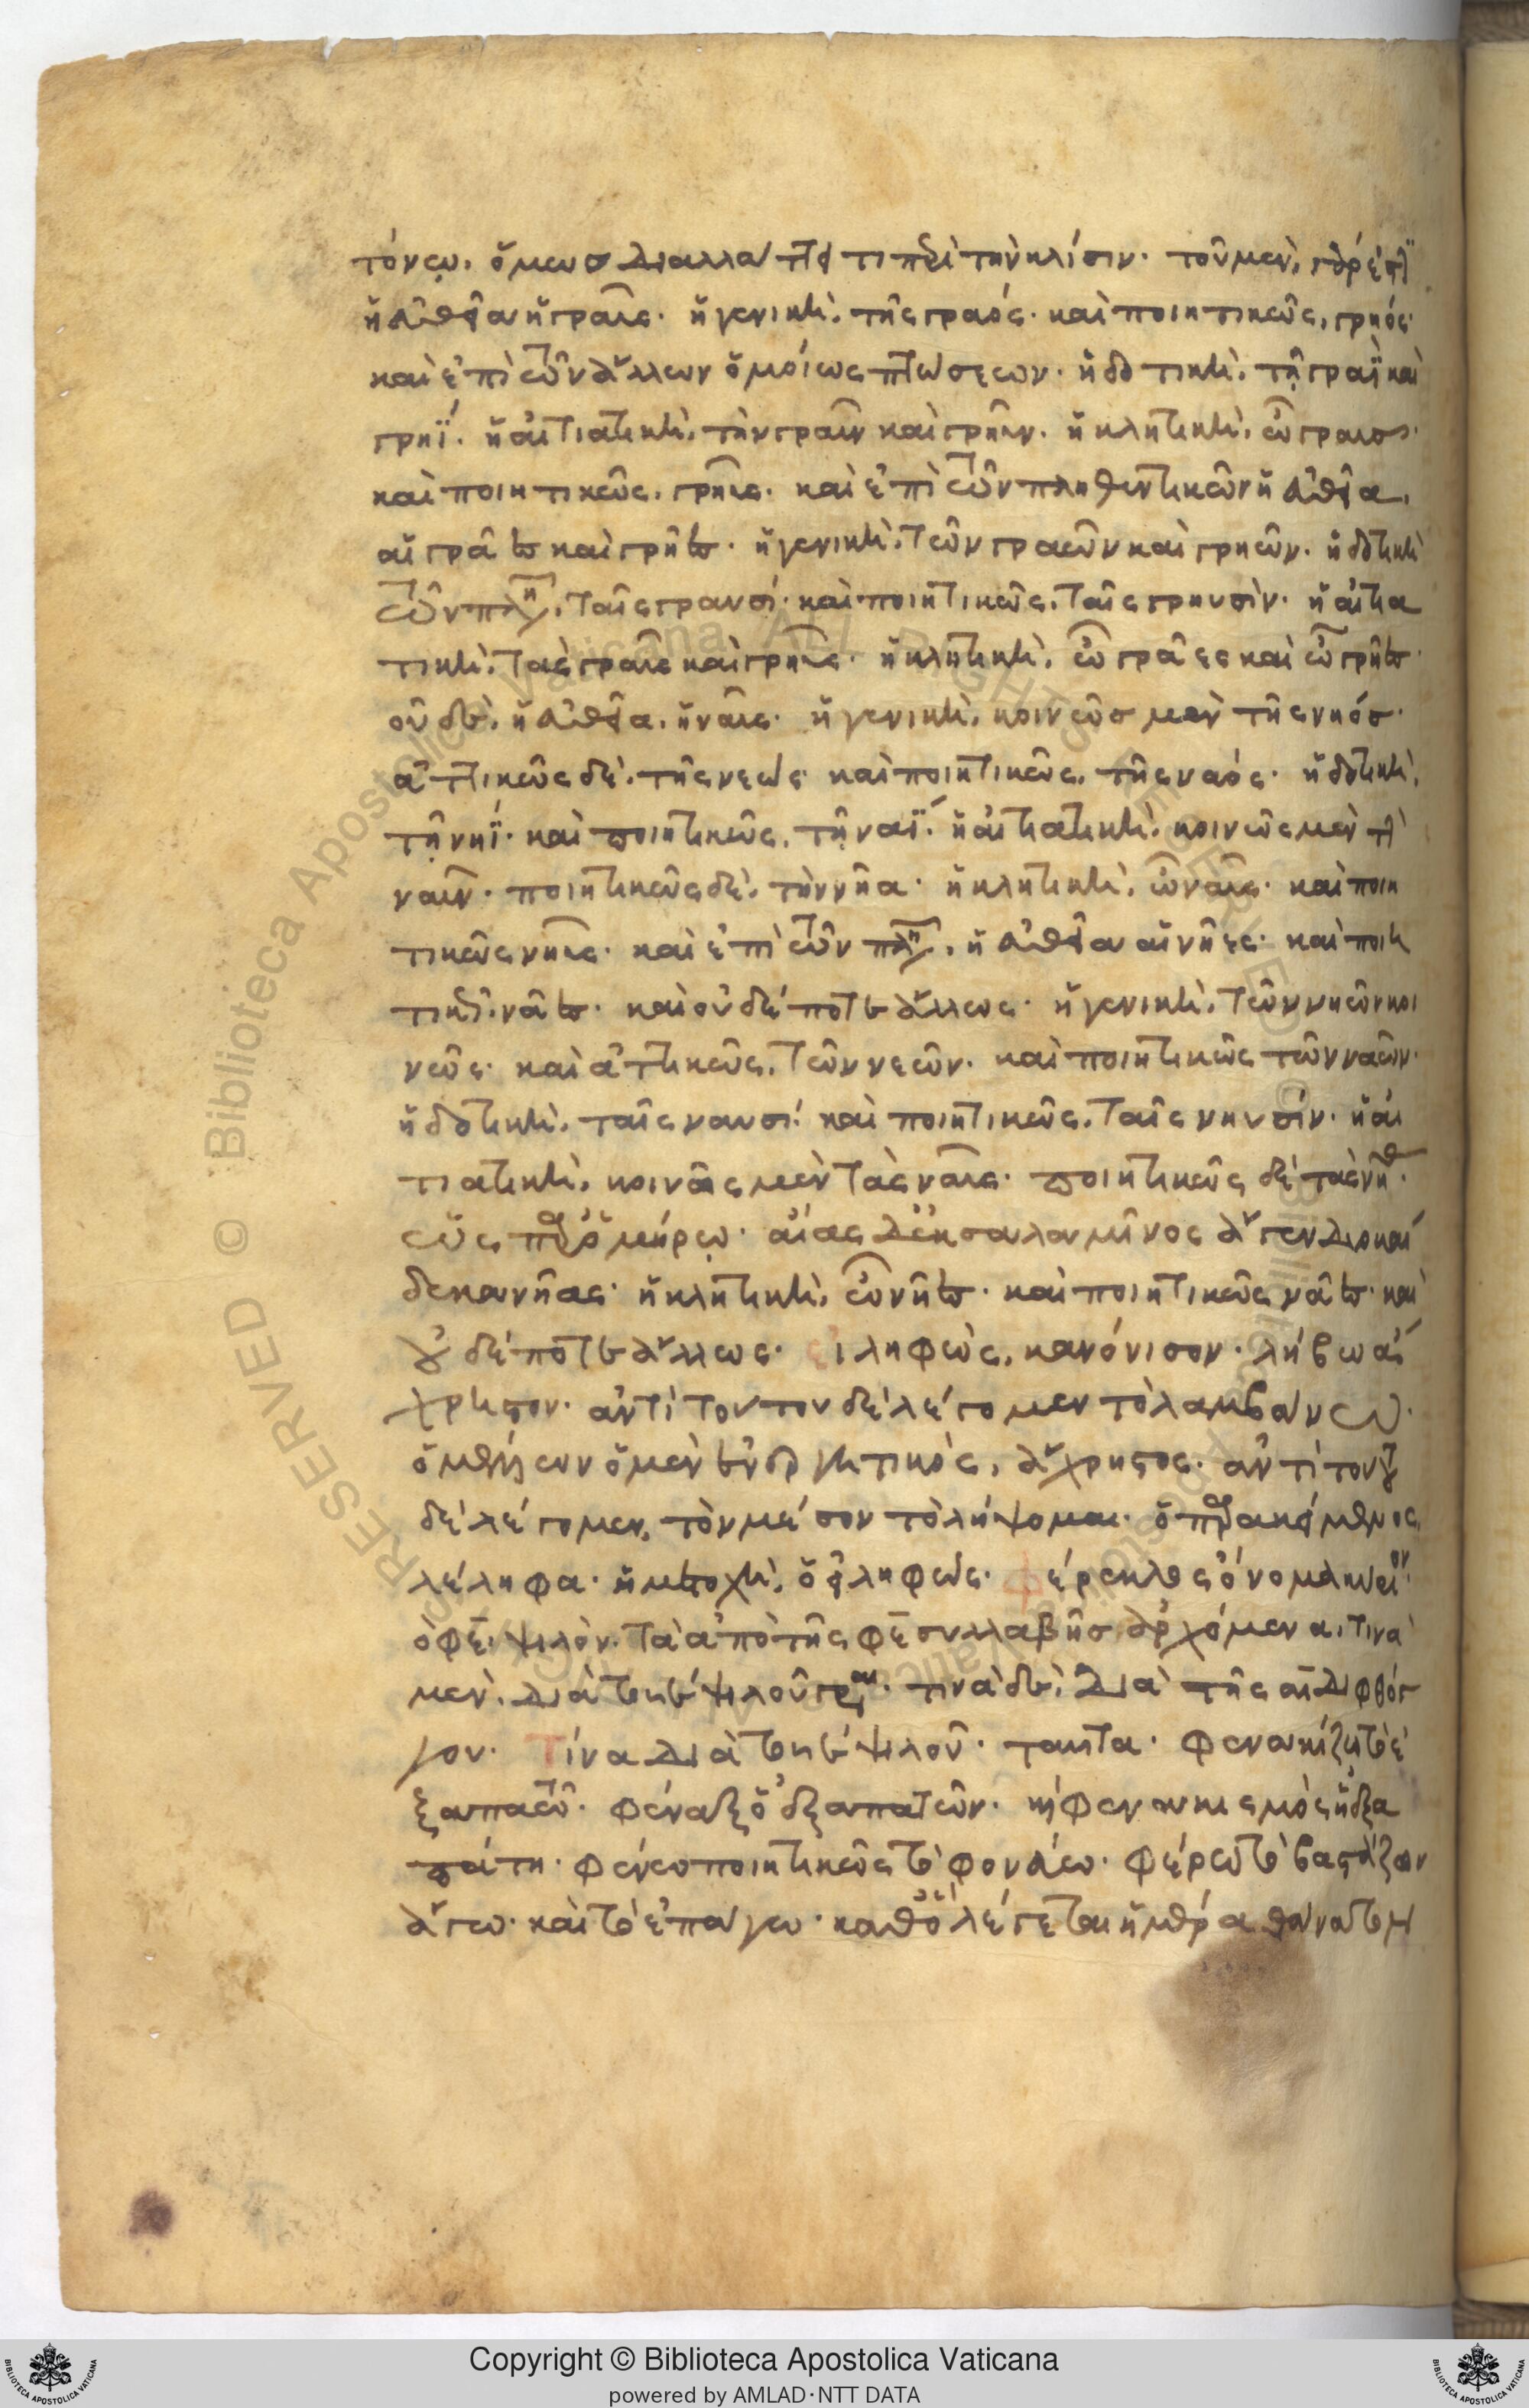 τόνω. ὅμως διαλλάττει τι περὶ τὴν κλίσιν. τοῦ μὲν,
ἡ εὐθεῖα ἡ γραῦς. ἡ γενικὴ. τῆς γραός. καὶ ποιητικῶς, γρηός.
καὶ ἐπὶ τῶν ἄλλων ὁμοίως πτώσεων. ἡ δοτικὴ. τῇ γραῒ καὶ
γρηΐ. ἡ αἰτιατικὴ. τὴν γραῦν καὶ γρῆυν. ἡ κλητικὴ. ὦ γραυς.
καὶ ποιητικῶς. γρῆυς. καὶ ἐπὶ τῶν πληθυντικῶν ἡ εὐθεῖα.
αἱ γρᾶες καὶ γρῆες. ἡ γενικὴ. τῶν γραῶν καὶ γρηῶν. ἡ δοτικὴ
τῶν πλη. ταῖς γραυσί. καὶ ποιητικῶς. ταῖς γρηυσίν. ἡ αἰτια
τικὴ. τὰς γραῦς καὶ γρῆυς. ἡ κλητικὴ. ὦ γρᾶες καὶ ὦ γρῆες.
οὗ δὲ, ἡ εὐθεῖα. ἡ ναῦς. ἡ γενικὴ. κοινῶς μὲν τῆς νηός.
ἀττικῶς δὲ. τῆς νεώς καὶ ποιητικῶς. τῆς ναός. ἡ δοτικὴ.
τῇ νηΐ. καὶ ποιητικῶς. τῇ ναΐ. ἡ αἰτιατικὴ. κοινῶς μὲν τὴν
ναῦν. ποιητικῶς δὲ. τὴν νῆα. ἡ κλητικὴ. ὦ ναῦς. καὶ ποιη
τικῶς νῆυς. καὶ ἐπὶ τῶν πλη. ἡ εὐθεῖα αἱ νῆες. καὶ ποιη
τικῶς. νᾶες. καὶ οὐδέποτε ἄλλως. ἡ γενικὴ. τῶν νηῶν κοι
νῶς. καὶ ἀττικῶς. τῶν νεῶν. καὶ ποιητικῶς τῶν ναῶν.
ἡ δοτικὴ. ταῖς ναυσί. καὶ ποιητικῶς. ταῖς νηυσίν. ἡ αἰ
τιατικὴ. κοινῶς μὲν τὰς ναῦς. ποιητικῶς δὲ τὰς νῆας.
ὡς παρ' ὁμήρω. αἴας δ' ἐκ σαλαμῖνος ἄγεν δυοκαί
δεκα νῆας. ἡ κλητικὴ. ὦ νῆες. καὶ ποιητικῶς νᾶες. καὶ
οὐδέποτε ἄλλως. εἰληφὼς, κανόνισον. λήβω ἄ
χρηστον. ἀντὶ τούτου δὲ λέγομεν τὸ λαμβάνω.
ὁ μέλλων ὁ μὲν ἐνεργητικὸς, ἄχρηστος. ἀντὶ τούτου
δὲ λέγομεν, τὸν μέσον τὸ λήψομαι. ὁ παρακείμενος,
λέληφα. ἡ μετοχὴ, ὁ εἰληφώς. φέρεκλος ὄνομα
ὁ φε. ψιλὸν. τὰ ἀπὸ τῆς φε συλλαβῆς ἀρχόμενα, τινὰ
μὲν, διὰ τοῦ ε ψιλοῦ γράφεται. τινὰ δὲ, διὰ τῆς αι διφθόγ
γου. Τίνα διὰ τοῦ ε ψιλοῦ. ταῦτα. φενακίζω τὸ ἐ
ξαπατῶ. φέναξ ὁ ἐξαπατῶν. φενακισμὸς ἡ ἐξα
πάτη. φένω ποιητικῶς τὸ φονεύω. φέρω τὸ βαστάζω
ἄγω. καὶ τὸ ἐπάγω. καθὸ λέγεται ἡμέρα θάνατον